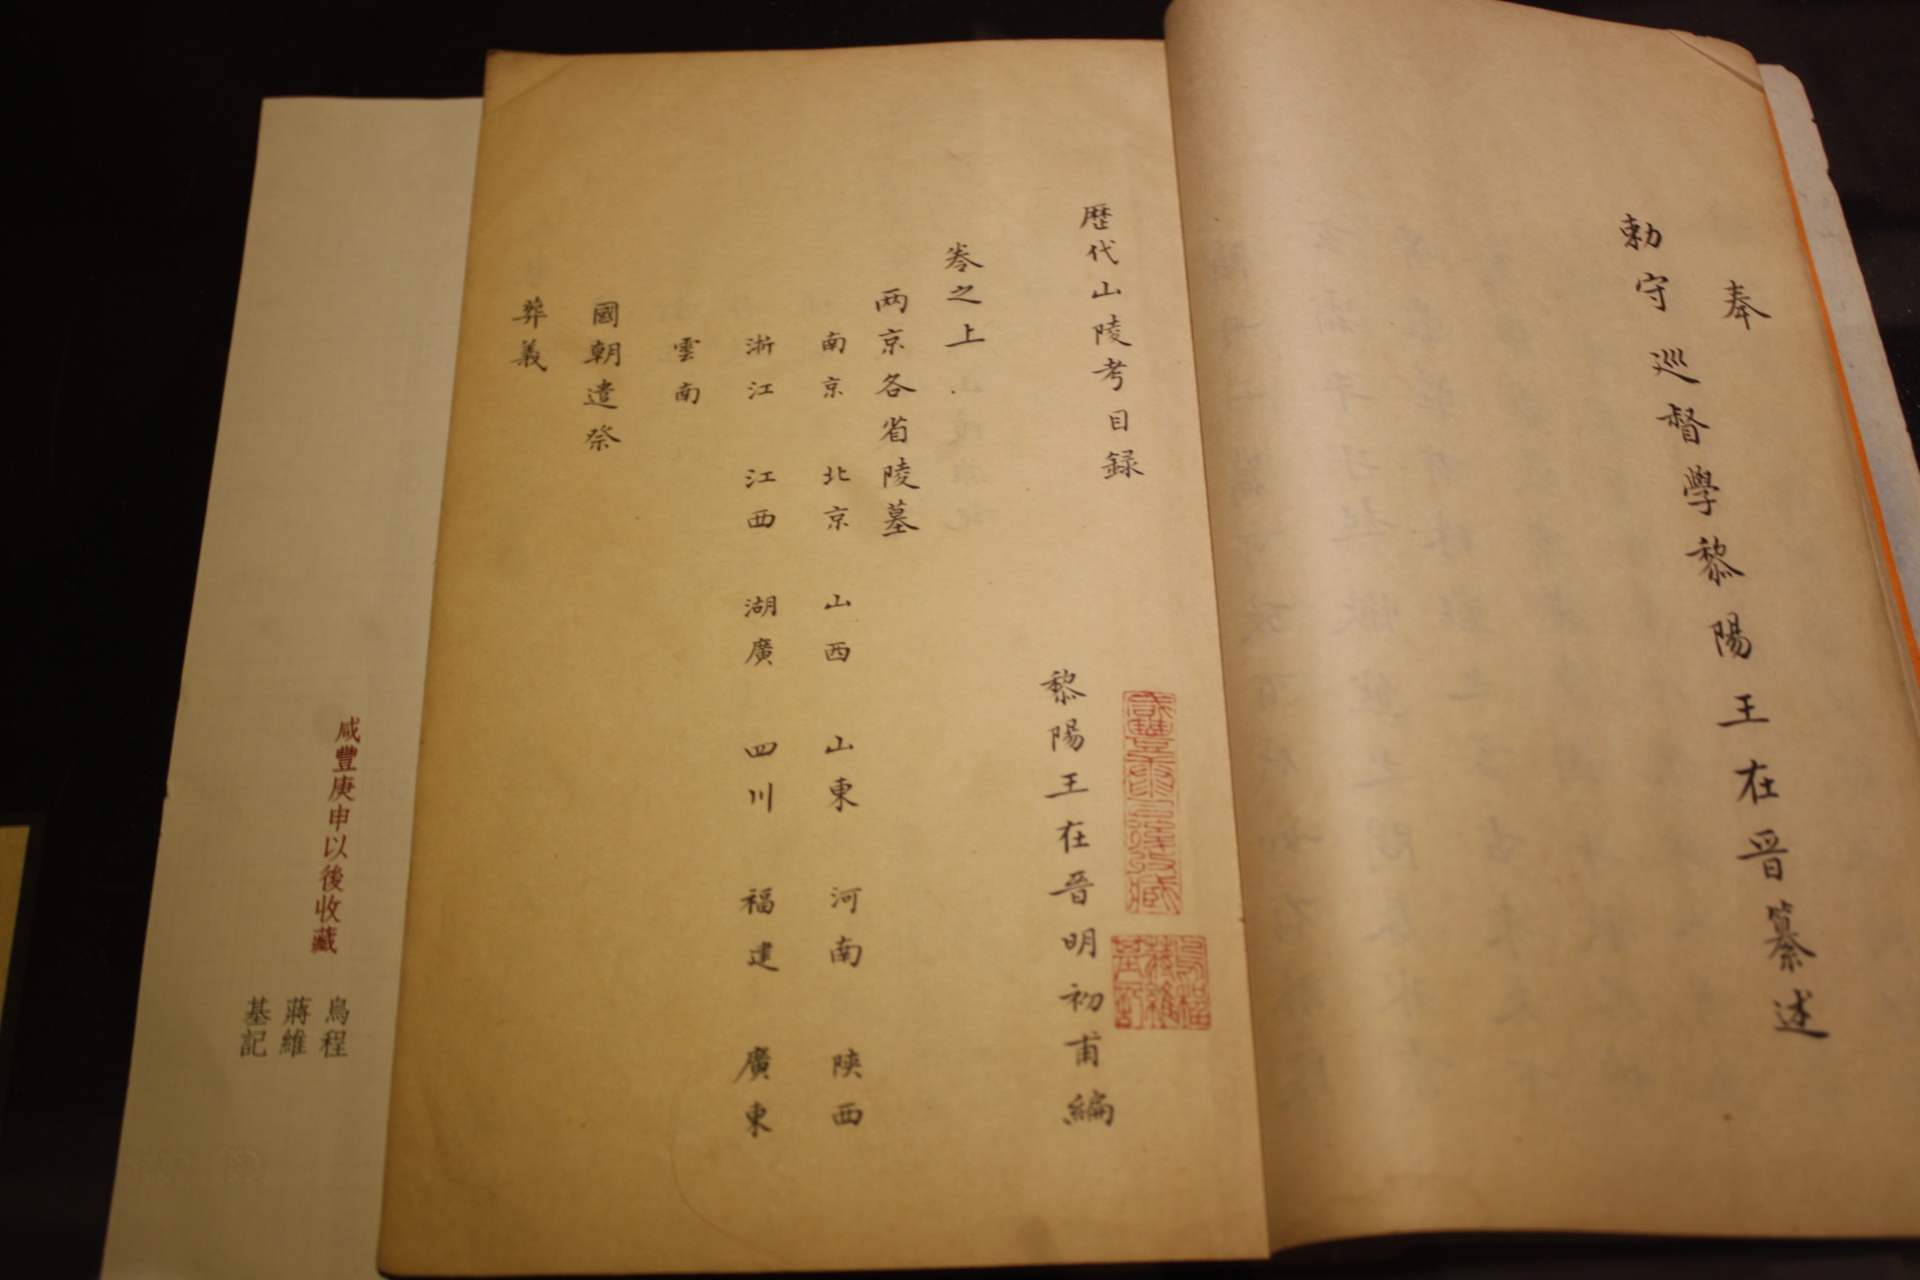 奉
勅守巡督學黎陽王在晋纂述
歷代山陵考目録
黎陽王在晉明初甫編
卷之上
两京各省陵墓
南京 北京 山西 山東 河南 陕西
浙江 江西 湖廣 四川 福建 廣東
雲南
國朝遣祭
葬義
咸豐庚申以後收藏
烏程
蔣維
基記
咸豐庚申以後收藏
烏程
蔣維
基記